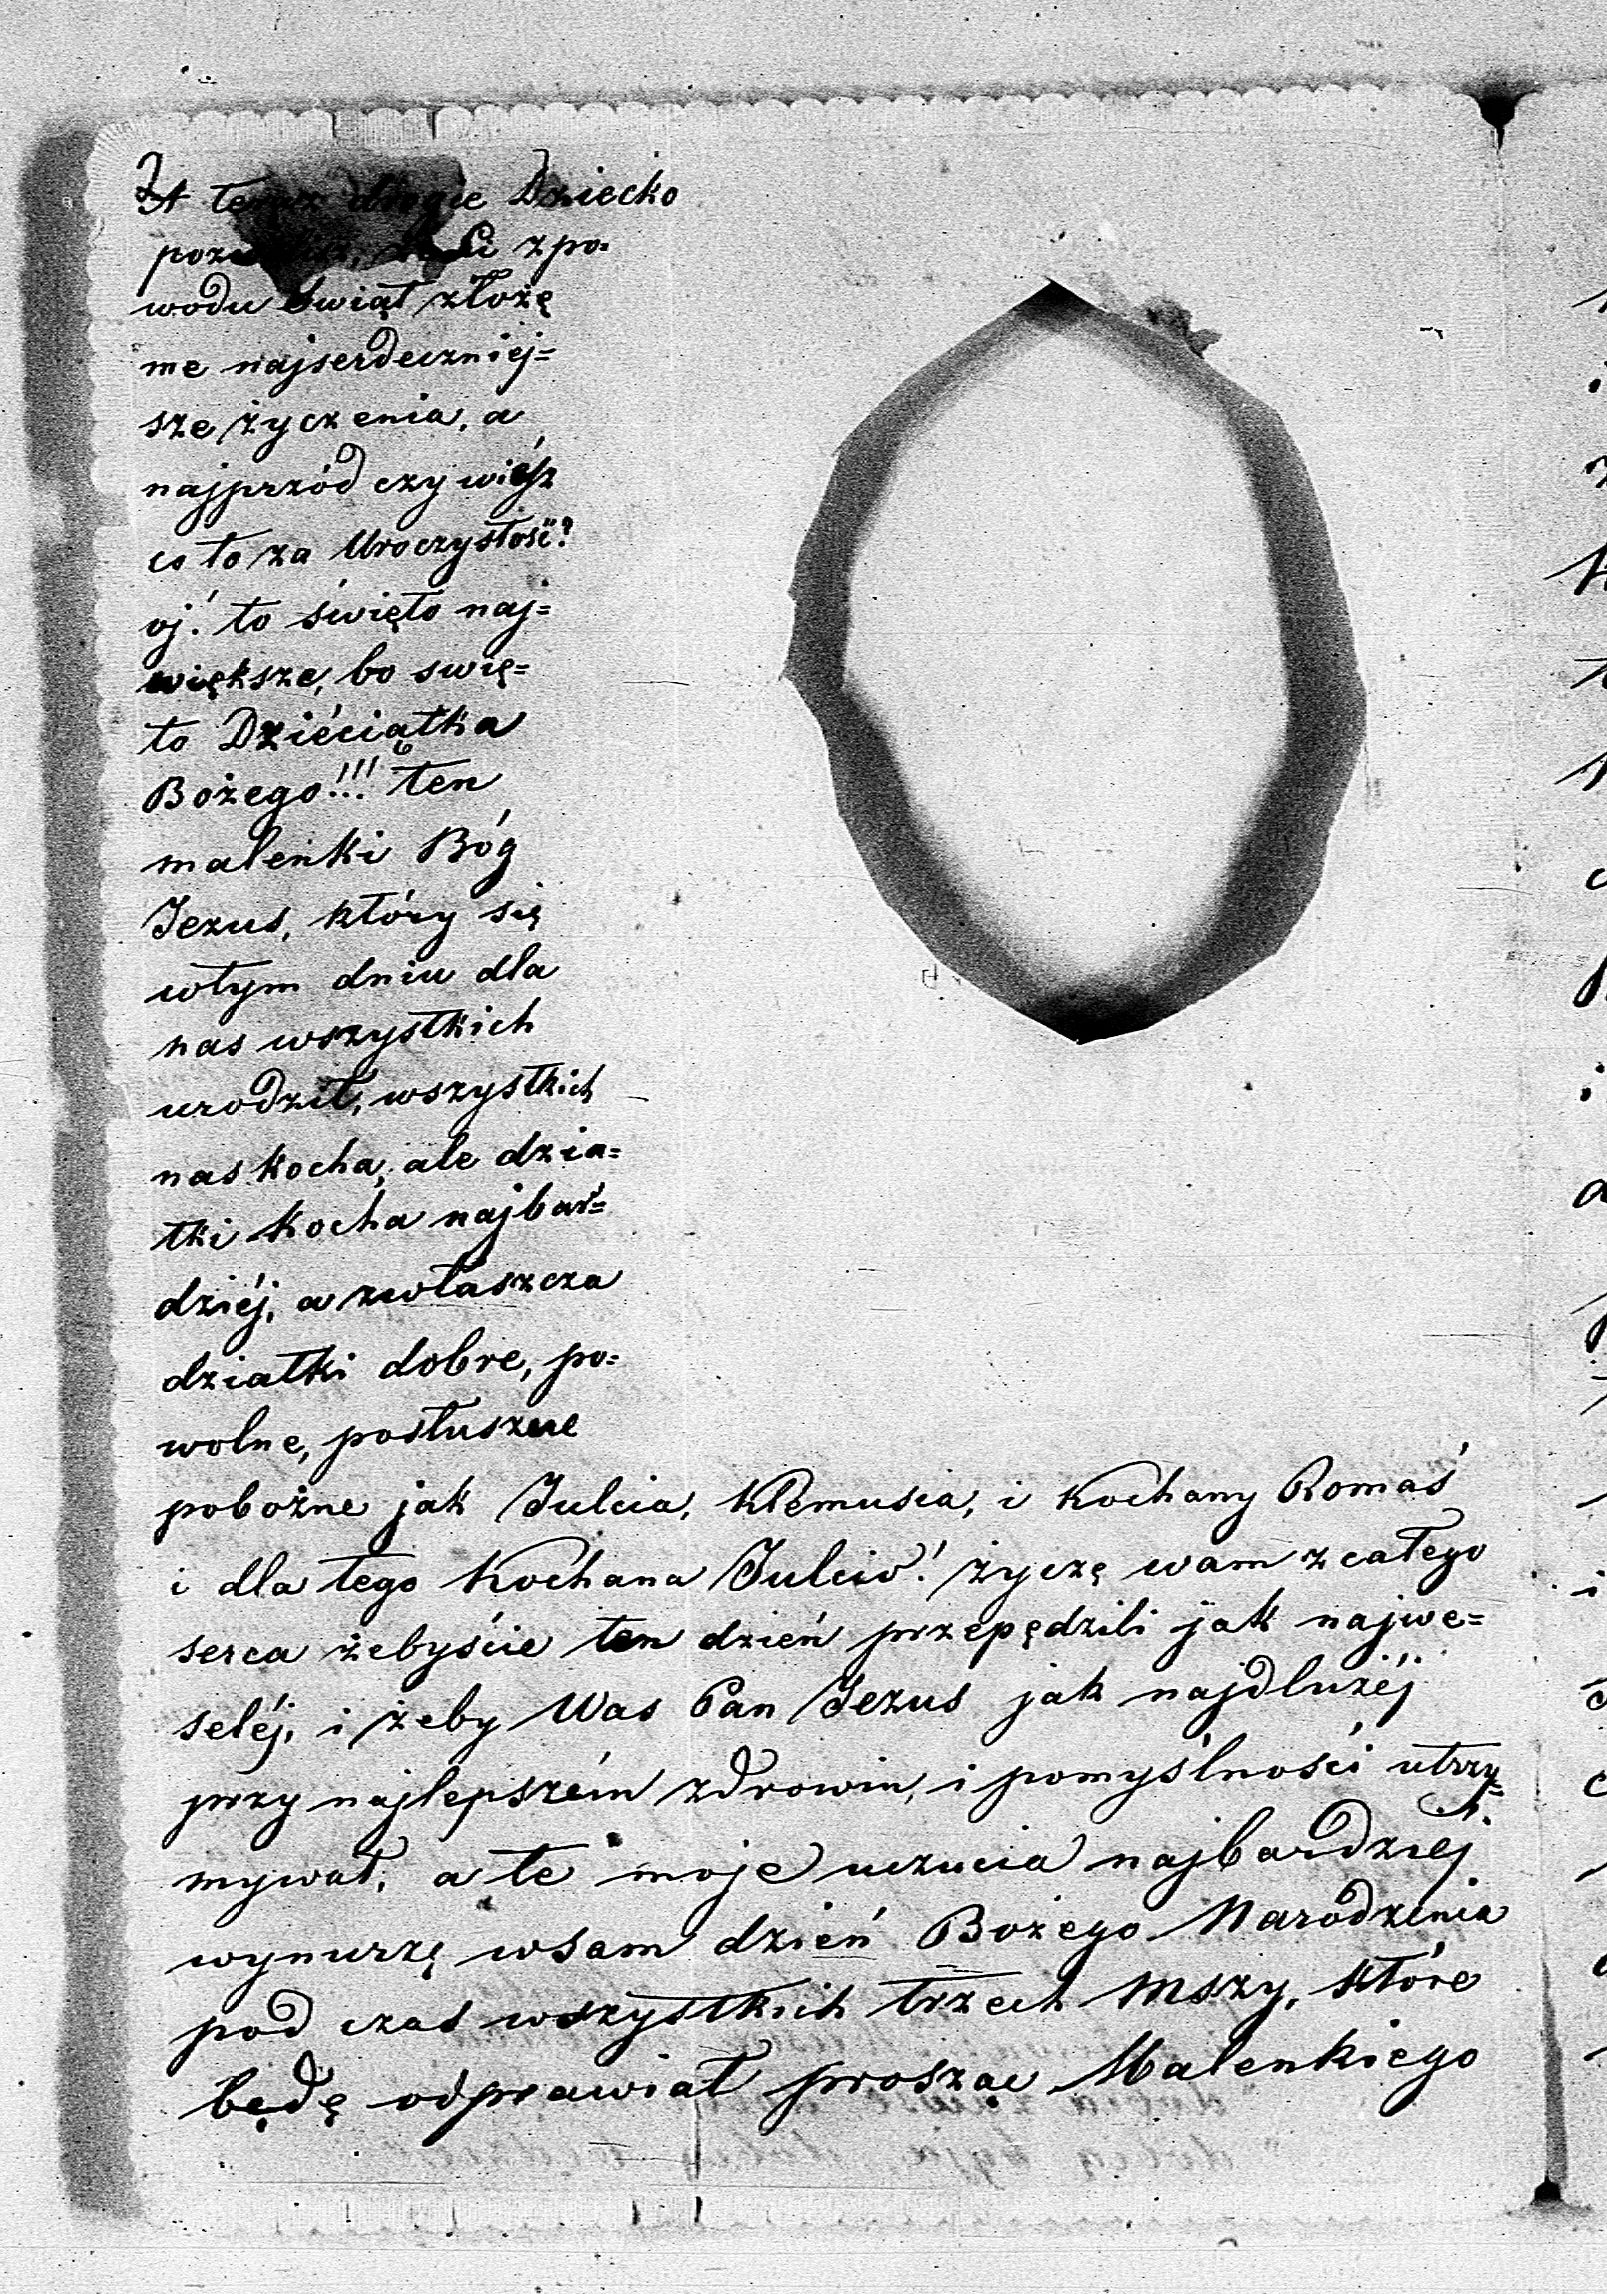 A teraz drogie Dziecko
Ci z po=
wodu Świąt złożę
me najserdeczniej=
sze życzenia, a
najprzód czy wiész
co to za Uroczystość?
oj! to święto naj=
większe, bo swię=
to Dziéciątka
Bożego!!! ten
maleńki Bóg
Jezus, który się
wtym dniu dla
nas wszystkich
urodził, wszystkich
nas kocha, ale dzia=
tki kocha najbar=
dziéj, a zwłaszcza
dziatki dobre, po=
wolne, posłuszne
pobożne jak Julcia, Klemusia, i kochany Romaś
i dla tego kochana Julciu! życzę wam z całego
serca żebyście ten dzień przepędzili jak najwe=
seléj, i żeby Was Pan Jezus jak najdlużéj
przy najlepszém zdrowiu, i pomyślności utrzy=
mywał, a te moje uczucia najbardziej
wynurzę wsam dzień Bożego Narodzenia
pod czas wszystkich trzech Mszy, które
będę odprawiał prosząc Malenkiego